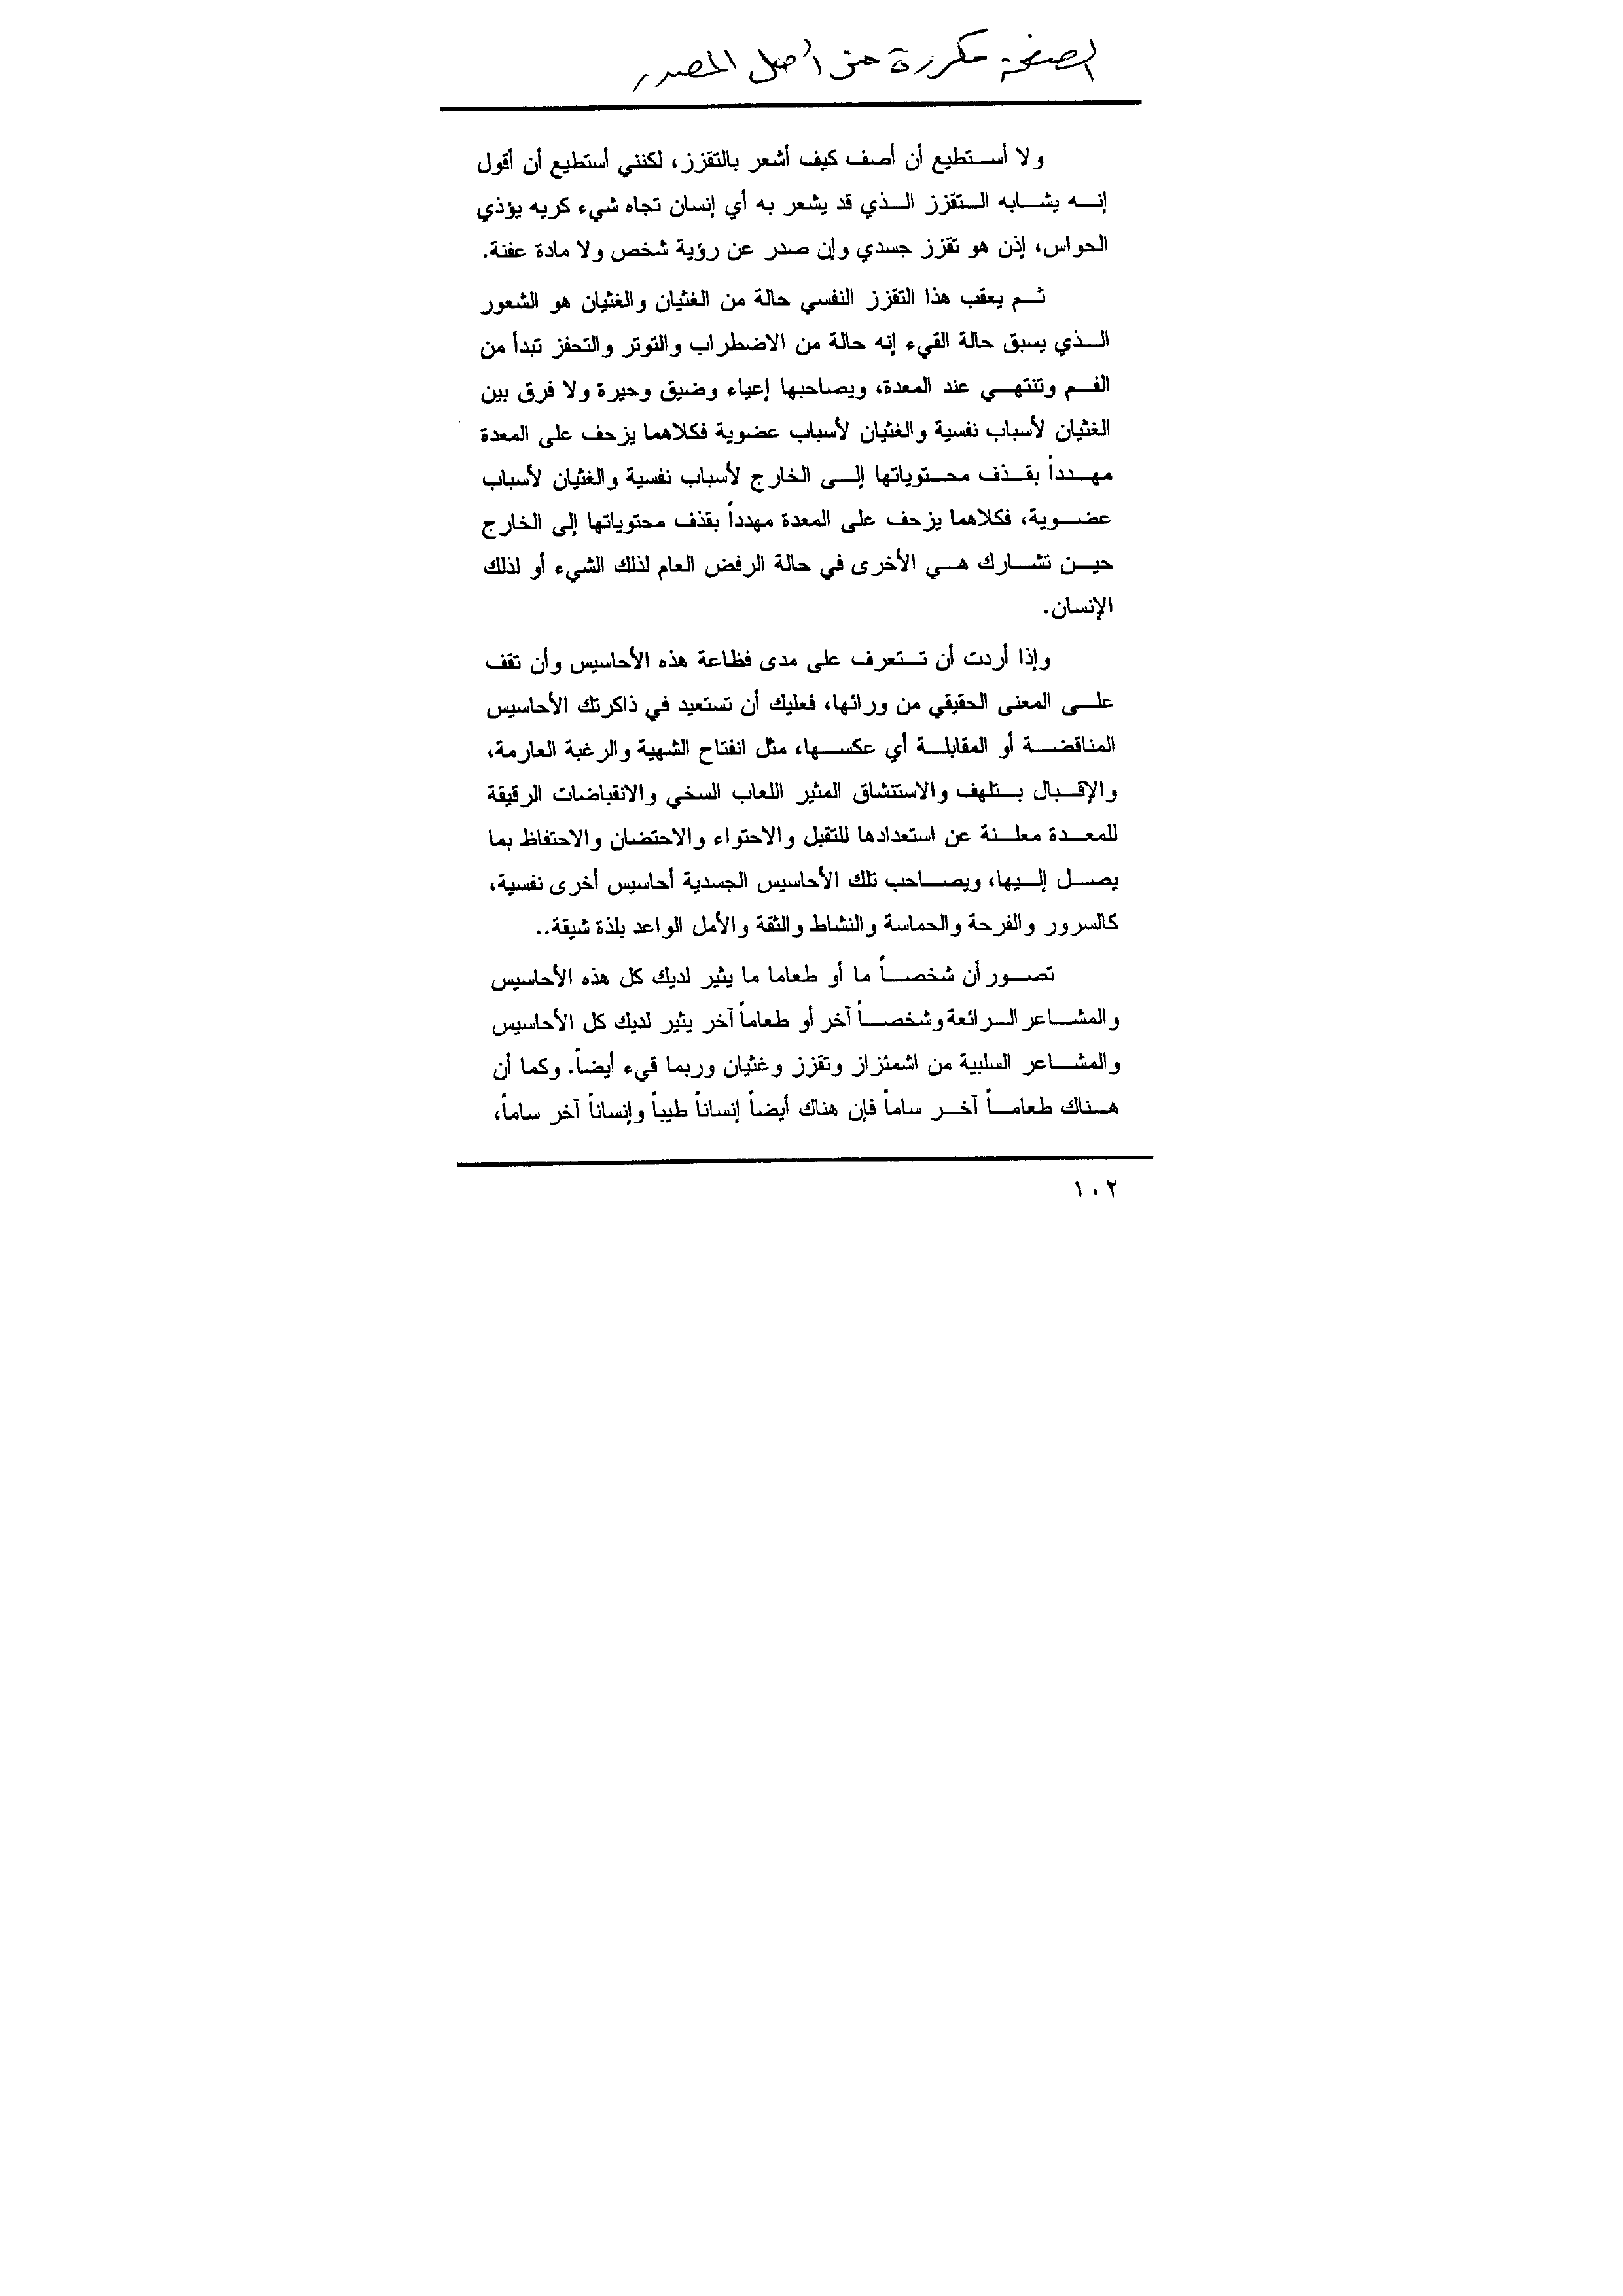 الصفحة مكررة من أصل المصدر
ولا أستطيع أن أصف كيف أشعر بالتقزز، لكنني أستطيع أن أقول
إنه يشابه التقزز الذي قد يشعر به أي إنسان تجاه شيء كريه يؤذي
الحواس، إذن هو تقزز جسدي وإن صدر عن رؤية شخص ولا مادة عفنة.
ثم يعقب هذا التقزز النفسي حالة من الغثيان والغثيان هو الشعور
الذي يسبق حالة القيء إنه حالة من الاضطراب والتوتر والتحفز تبدأ من
الفم وتنتهي عند المعدة، ويصاحبها إعياء وضيق وحيرة ولا فرق بين
الغثيان لأسباب نفسية والغثيان لأسباب عضوية فكلاهما يزحف على المعدة
مهدداً بقذف محتوياتها إلى الخارج لأسباب نفسية والغثيان لأسباب
عضوية، فكلاهما يزحف على المعدة مهدداً بقذف محتوياتها إلى الخارج
حين تشارك هي الأخرى في حالة الرفض العام لذلك الشيء أو لذلك
الإنسان.
وإذا أردت أن تستعرف على مدى فظاعة هذه الأحاسيس وأن تقف
على المعنى الحقيقي من ورائها، فعليك أن تستعيد في ذاكرتك الأحاسيس
المناقضة أو المقابلة أي عكسها، مثل انفتاح الشهية والرغبة العارمة،
والإقبال بتلهف والاستنشاق المثير اللعاب السخي والانقباضات الرقيقة
للمعدة معلنة عن استعدادها للتقبل والاحتواء والاحتضان والاحتفاظ بما
يصل إليها، ويصاحب تلك الأحاسيس الجسدية أحاسيس أخرى نفسية،
كالسرور والفرحة والحماسة والنشاط والثقة والأمل الواعد بلذة شيقة..
تصور أن شخصاً ما أو طعاما ما يثير لديك كل هذه الأحاسيس
والمشاعر الرائعة وشخصاً آخر أو طعاماً آخر يثير لديك كل الأحاسيس
والمشاعر السلبية من اشمئزاز وتقزز وغثيان وربما قيء أيضاً. وكما أن
هناك طعاماً آخر ساماً فإن هناك أيضاً إنساناً طيباً وإنساناً آخر ساماً،
١٠٢